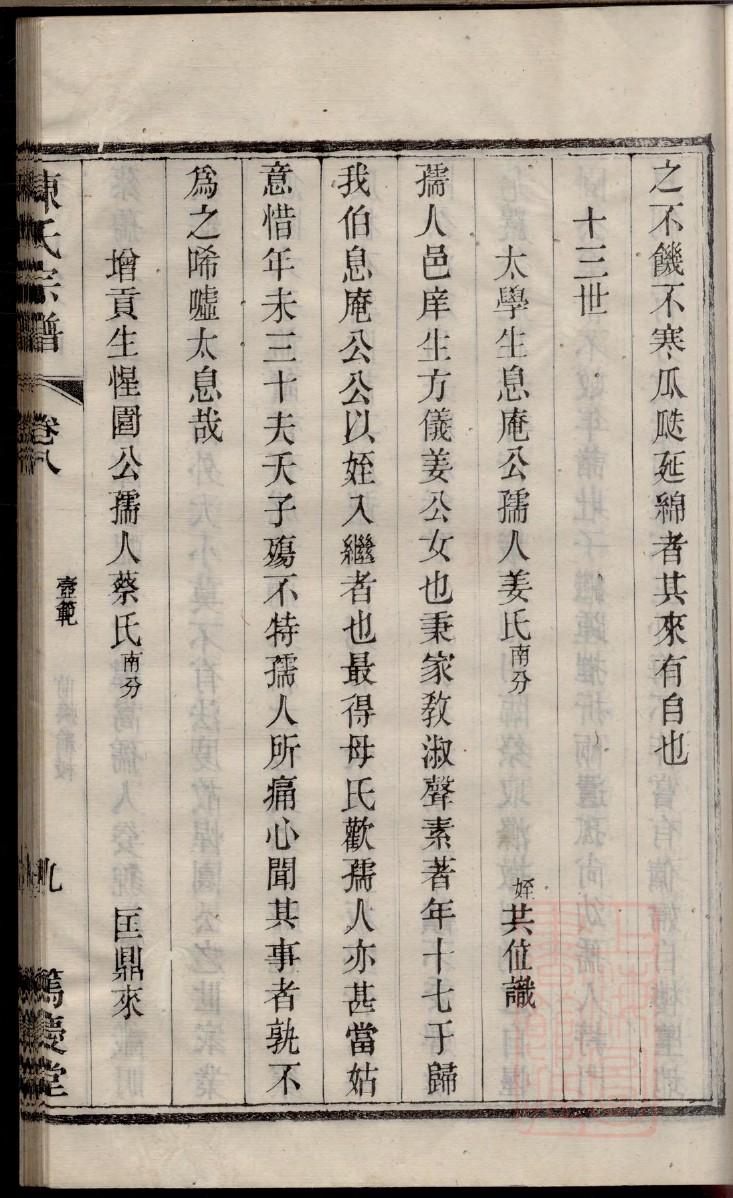 之不饑不寒瓜瓞延綿者其來有自也
十三世
太學生息庵公孺人姜氏南分 姪共位識
孺人邑庠生方儀姜公女也秉家教淑聲素著年十七于歸
我伯息庵公公以姪入繼者也最得母氏歡孺人亦甚當姑
意惜年未三十夫夭子殤不特孺人所痛心聞其事者孰不
爲之唏噓太息哉
增貢生惺園公孺人蔡氏南分 匡鼎來
陳氏宗譜 卷八 壼範 九 篤慶堂